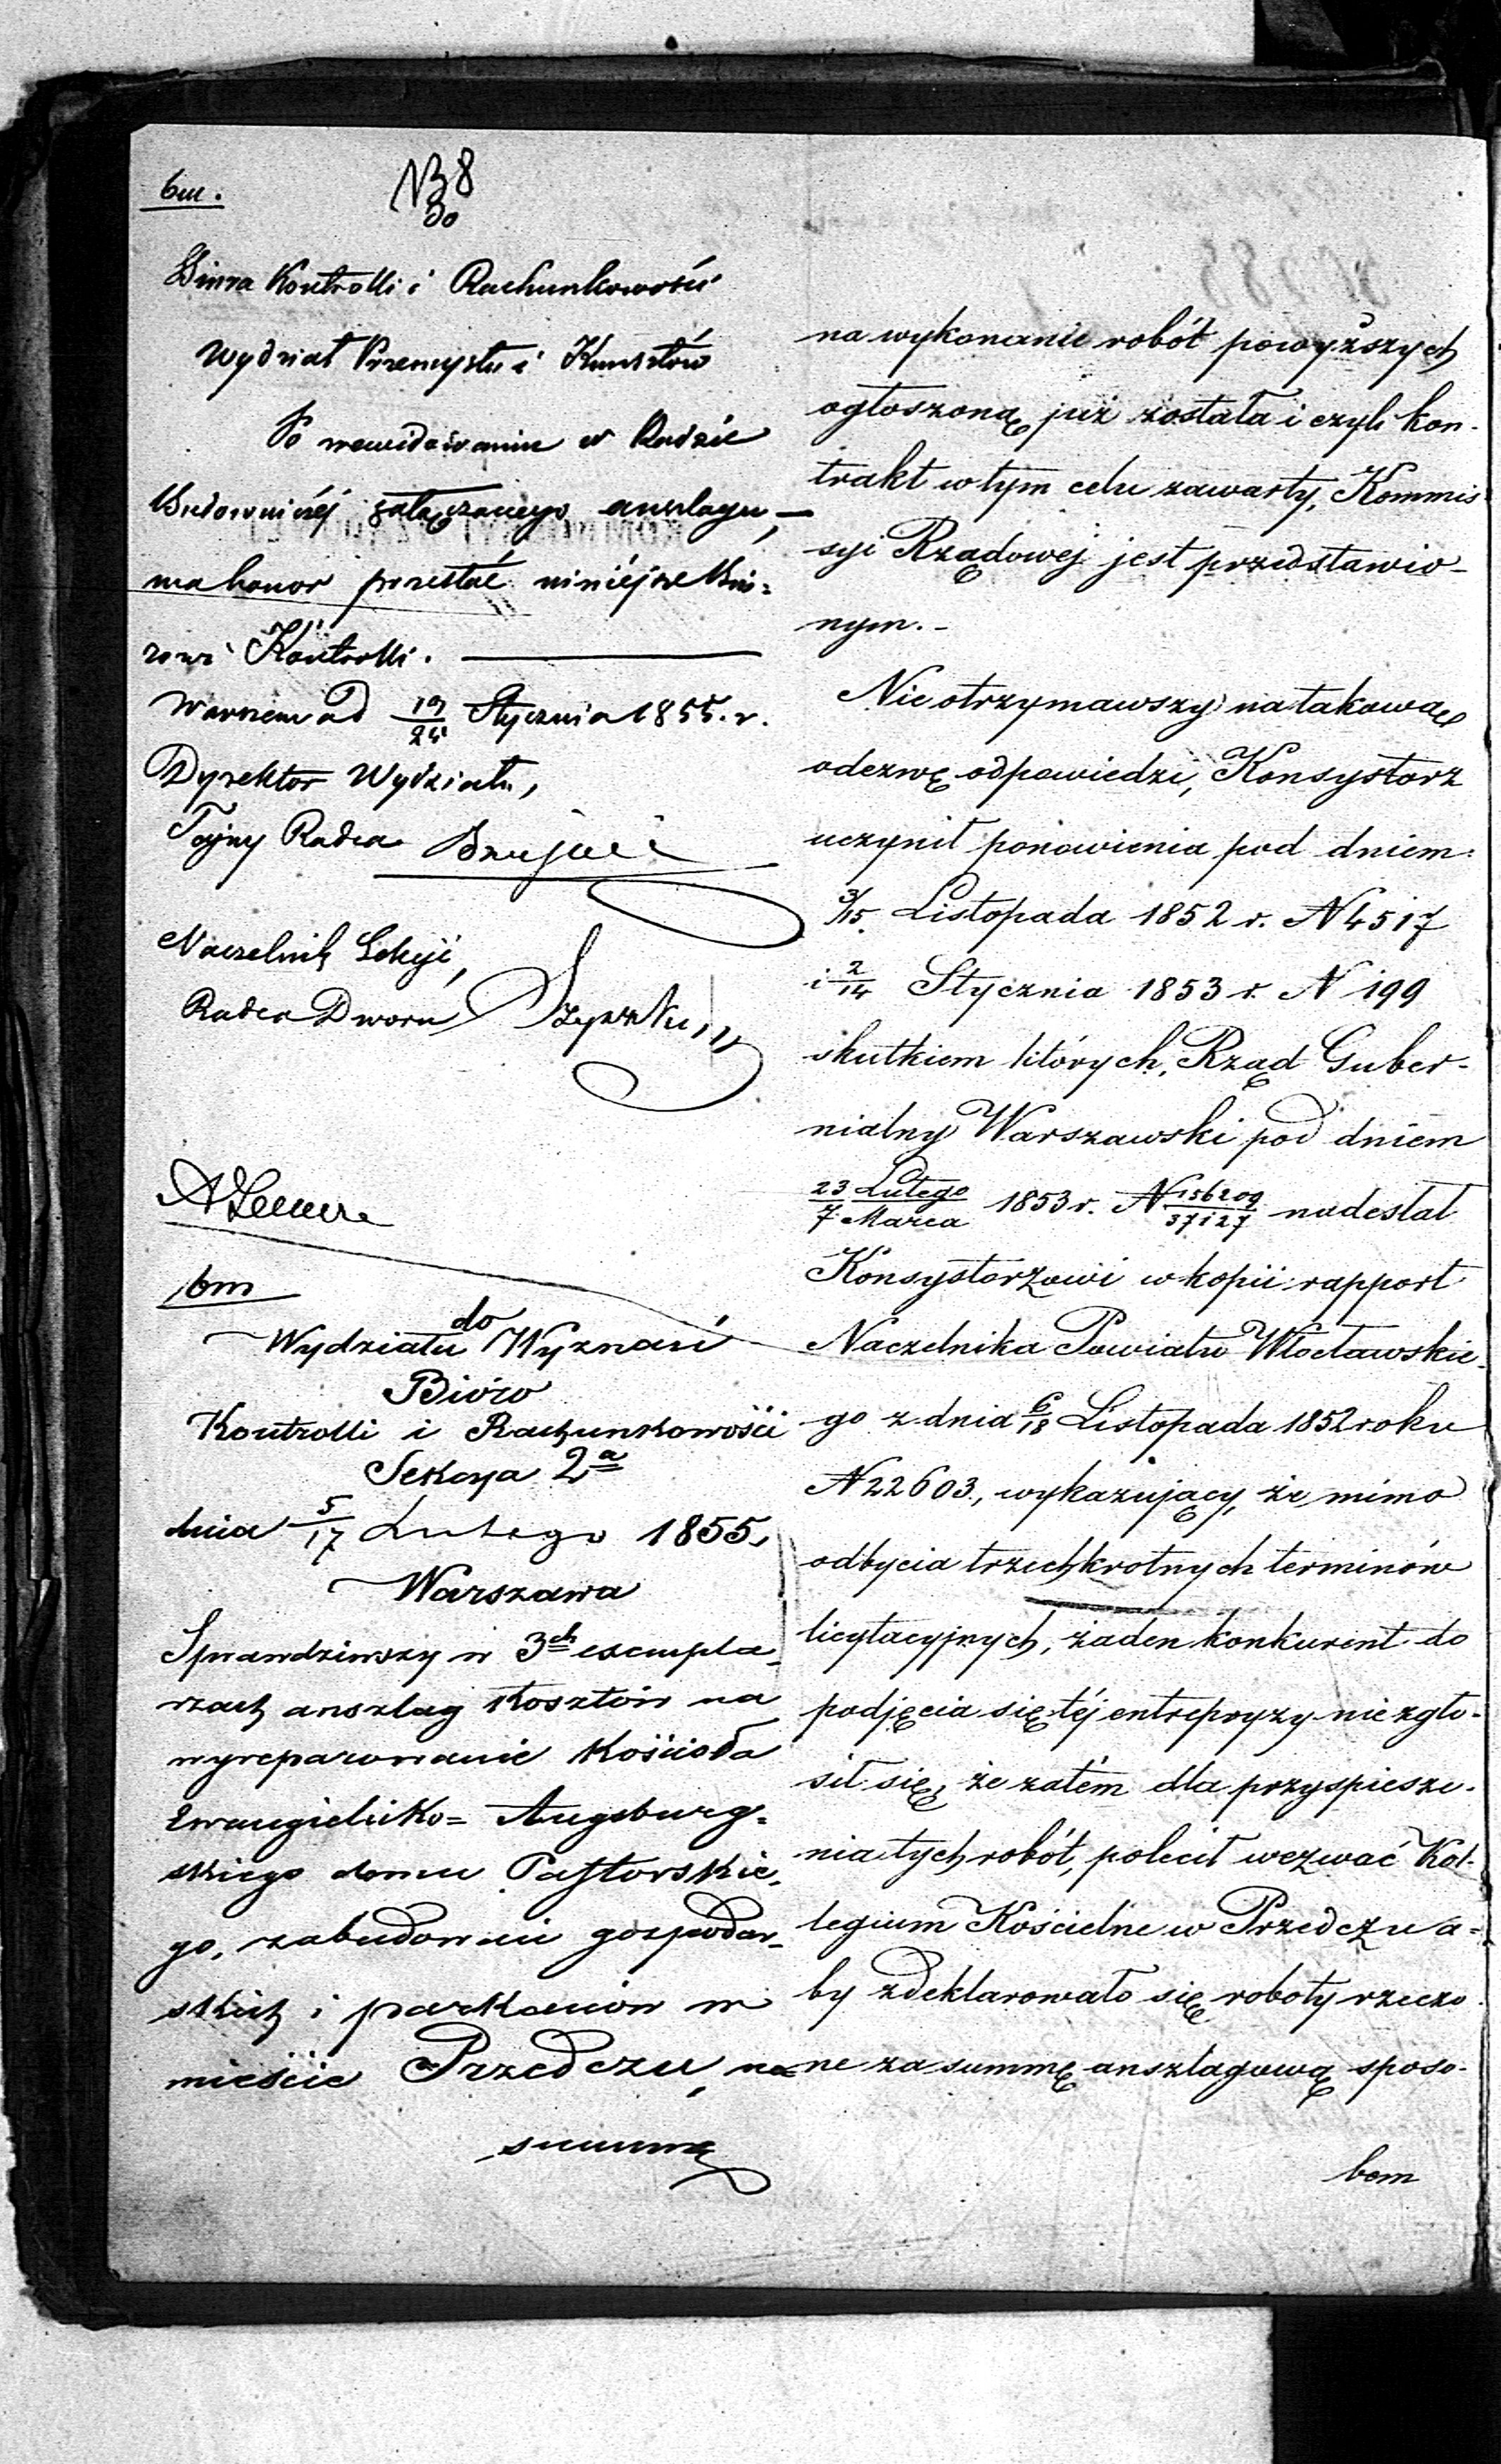 bm.
N 38
Do
Biura Kontrolli i Rachunkowości
Wydział Przemysłu i Kunsztów
Po zrewidowaniu w Radzie
Budowniczéj załączonego anszlagu,
ma honor przesłać niniéjsze Biu-
rowi Kontrolli.
Warszawa d 19/24 Stycznia 1855. r.
Dyrektor Wydziału,
Tajny Radca
Naczelnik Sekcji,
Radca Dworu
bm
do
Wydziału Wyznań
Bióro
Kontrolli i Rachunkowości
Sekcya 2a
dnia 5/17 Lutego 1855.
Warszawa
Sprawdziwszy w 3ch exempla-
rzach anszlag kosztów na
wyreparowanie Kościoła
Ewangielicko-Augsburg-
skiego domu Pastorskie-
go, zabudowań gospodar-
skich i parkanów w
mieście Przedczu, na
summę
na wykonanie robót powyższych
ogłoszoną już została i czyli kon-
trakt w tym celu zawarty, Kommis-
syi Rządowej jest przedstawio-
nym.-
Nie otrzymawszy na takową
odezwę odpowiedzi, Konsystorz
uczynił ponowienia pod dniem
3/15. Listopada 1852 r. N 4517
i 2/14 Stycznia 1853 r. N 199
skutkiem których, Rząd Guber-
nialny Warszawski pod dniem
23 Lutego/7 Marca 1853 r. N 156209/37127 nadesłał
Konsystorzowi w kopii rapport
Naczelnika Powiatu Włocławskie-
go z dnia 6/18 Listopada 1852 roku
N 22603., wykazujący, że mimo
odbycia trzechkrotnych terminów
licytacyjnych, żaden konkurent do
podjęcia się téj entrepryzy nie zgło-
sił się, że zatém dla przyspiesze-
nia tych robót, polecił wezwać Kol-
legium Kościelne w Przedczu a-
by zdeklarowało się roboty rzeczo-
ne za summę anszlagową sposo-
bem